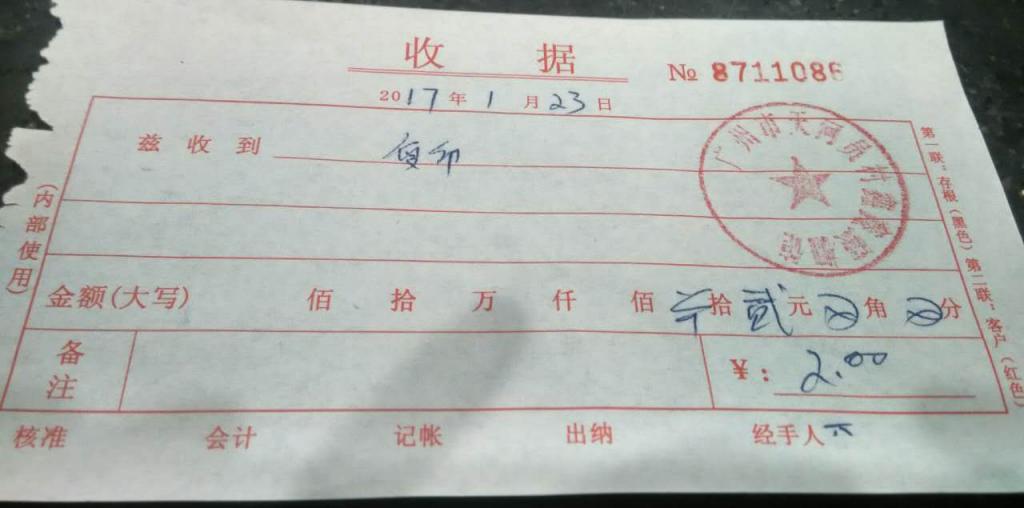 收 据
№ 8711086
2017年1月23日
兹收到 复印
(内部使用)
金额(大写) 佰 拾 万 仟 佰 拾 贰 元 角 分
备注
¥: 2.00
核准 会计 记帐 出纳 经手人
第一联:存根(黑色) 第二联:客户(红色)
广州市天河员村